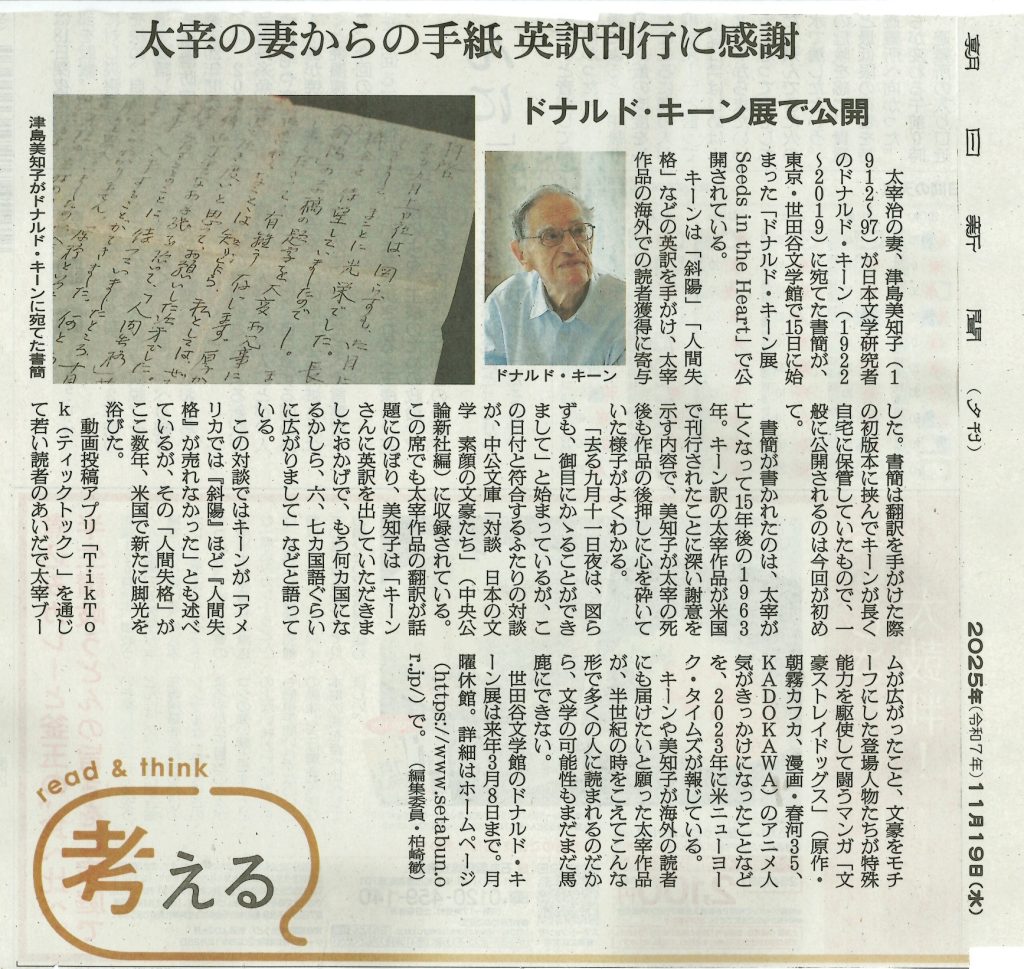 太宰の妻からの手紙 英訳刊行に感謝
ドナルド・キーン展で公開
津島美知子がドナルド・キーンに宛てた書簡
ドナルド・キーン
太宰治の妻、津島美知子（1
912〜97）が日本文学研究者
のドナルド・キーン（1922
〜2019）に宛てた書簡が、
東京・世田谷文学館で15日に始
まった「ドナルド・キーン展
Seeds in the Heart」で公
開されている。
キーンは「斜陽」「人間失
格」などの英訳を手がけ、太宰
作品の海外での読者獲得に寄与
した。書簡は翻訳を手がけた際
の初版本に挟んでキーンが長く
自宅に保管していたもので、一
般に公開されるのは今回が初め
て。
書簡が書かれたのは、太宰が
亡くなって15年後の1963
年。キーン訳の太宰作品が米国
で刊行されたことに深い謝意を
示す内容で、美知子が太宰の死
後も作品の後押しに心を砕いて
いた様子がよくわかる。
「去る九月十一日夜は、図ら
ずも、御目にかゝることができ
まして」と始まっているが、こ
の日付と符合するふたりの対談
が、中公文庫「対談　日本の文
学　素顔の文豪たち」（中央公
論新社編）に収録されている。
この席でも太宰作品の翻訳が話
題にのぼり、美知子は「キーン
さんに英訳を出していただきま
したおかげで、もう何カ国にな
るかしら、六、七カ国語ぐらい
に広がりまして」などと語って
いる。
この対談ではキーンが「アメ
リカでは『斜陽』ほど『人間失
格』が売れなかった」とも述べ
ているが、その「人間失格」が
ここ数年、米国で新たに脚光を
浴びた。
動画投稿アプリ「TikTo
k（ティックトック）」を通じ
て若い読者のあいだで太宰ブー
ムが広がったこと、文豪をモチ
ーフにした登場人物たちが特殊
能力を駆使して闘うマンガ「文
豪ストレイドッグス」（原作・
朝霧カフカ、漫画・春河35、
KADOKAWA）のアニメ人
気がきっかけになったことなど
を、2023年に米ニューヨー
ク・タイムズが報じている。
キーンや美知子が海外の読者
にも届けたいと願った太宰作品
が、半世紀の時をこえてこんな
形で多くの人に読まれるのだか
ら、文学の可能性もまだまだ馬
鹿にできない。
世田谷文学館のドナルド・キ
ーン展は来年3月8日まで。月
曜休館。詳細はホームページ
（https://www.setabun.o
r.jp/）で。（編集委員・柏崎歓）
read & think
考える
朝日新聞（夕刊）
2025年（令和7年）11月19日（水）